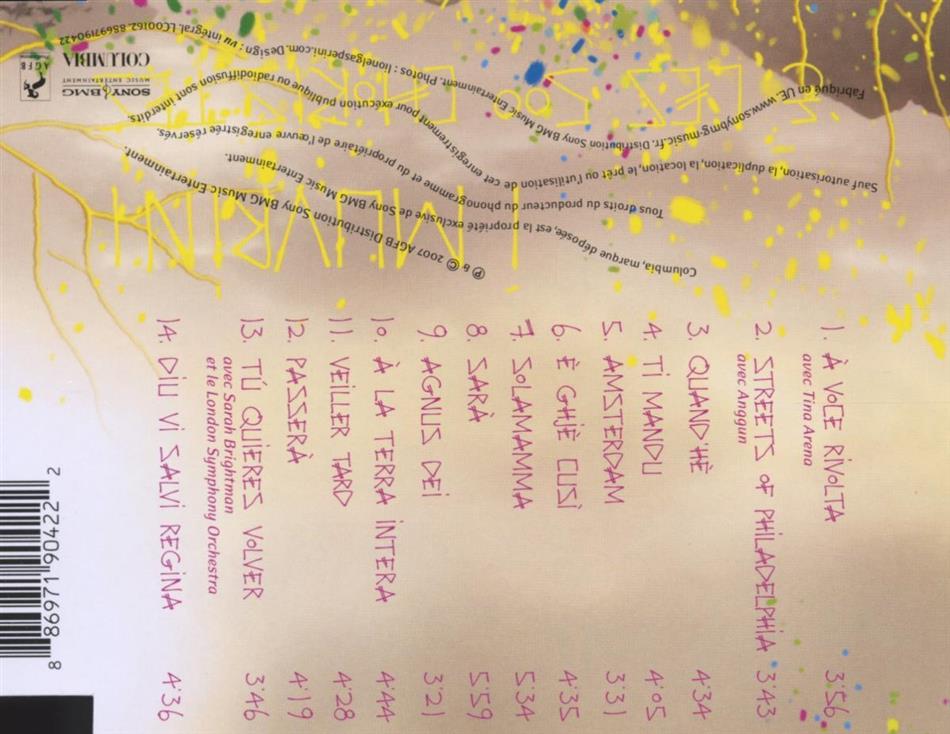 1. À VOCE RIVOLTA 3'56
avec Tina Arena
2. STREETS OF PHILADELPHIA 3'43
avec Anggun
3. QUAND'HÈ 4'34
4. TI MANDU 4'05
5. AMSTERDAM 3'31
6. È GHJÈ CUSÌ 4'35
7. SOLAMAMMA 5'34
8. SARÀ 5'59
9. AGNUS DEI 3'21
10. À LA TERRA INTERA 4'44
11. VEILLER TARD 4'28
12. PASSERÀ 4'19
13. TÚ QUIERES VOLVER 3'46
avec Sarah Brightman
et le London Symphony Orchestra
14. DIU VI SALVI REGINA 4'36
I MUVRINI
℗ & © 2007 AGFB Distribution Sony BMG Music Entertainment.
Columbia, marque déposée, est la propriété exclusive de Sony BMG Music Entertainment.
Tous droits du producteur du phonogramme et du propriétaire de l'œuvre enregistrée réservés.
Sauf autorisation, la duplication, la location, le prêt ou l'utilisation de cet enregistrement pour exécution publique ou radiodiffusion sont interdits.
Fabriqué en UE. www.sonybmg-music.fr. Distribution Sony BMG Music Entertainment. Photos : lionelgasperini.com. Design : vu intégral. LC00162. 88697190422
SONY BMG
MUSIC ENTERTAINMENT
COLUMBIA
AGFB
8 86971 90422 2